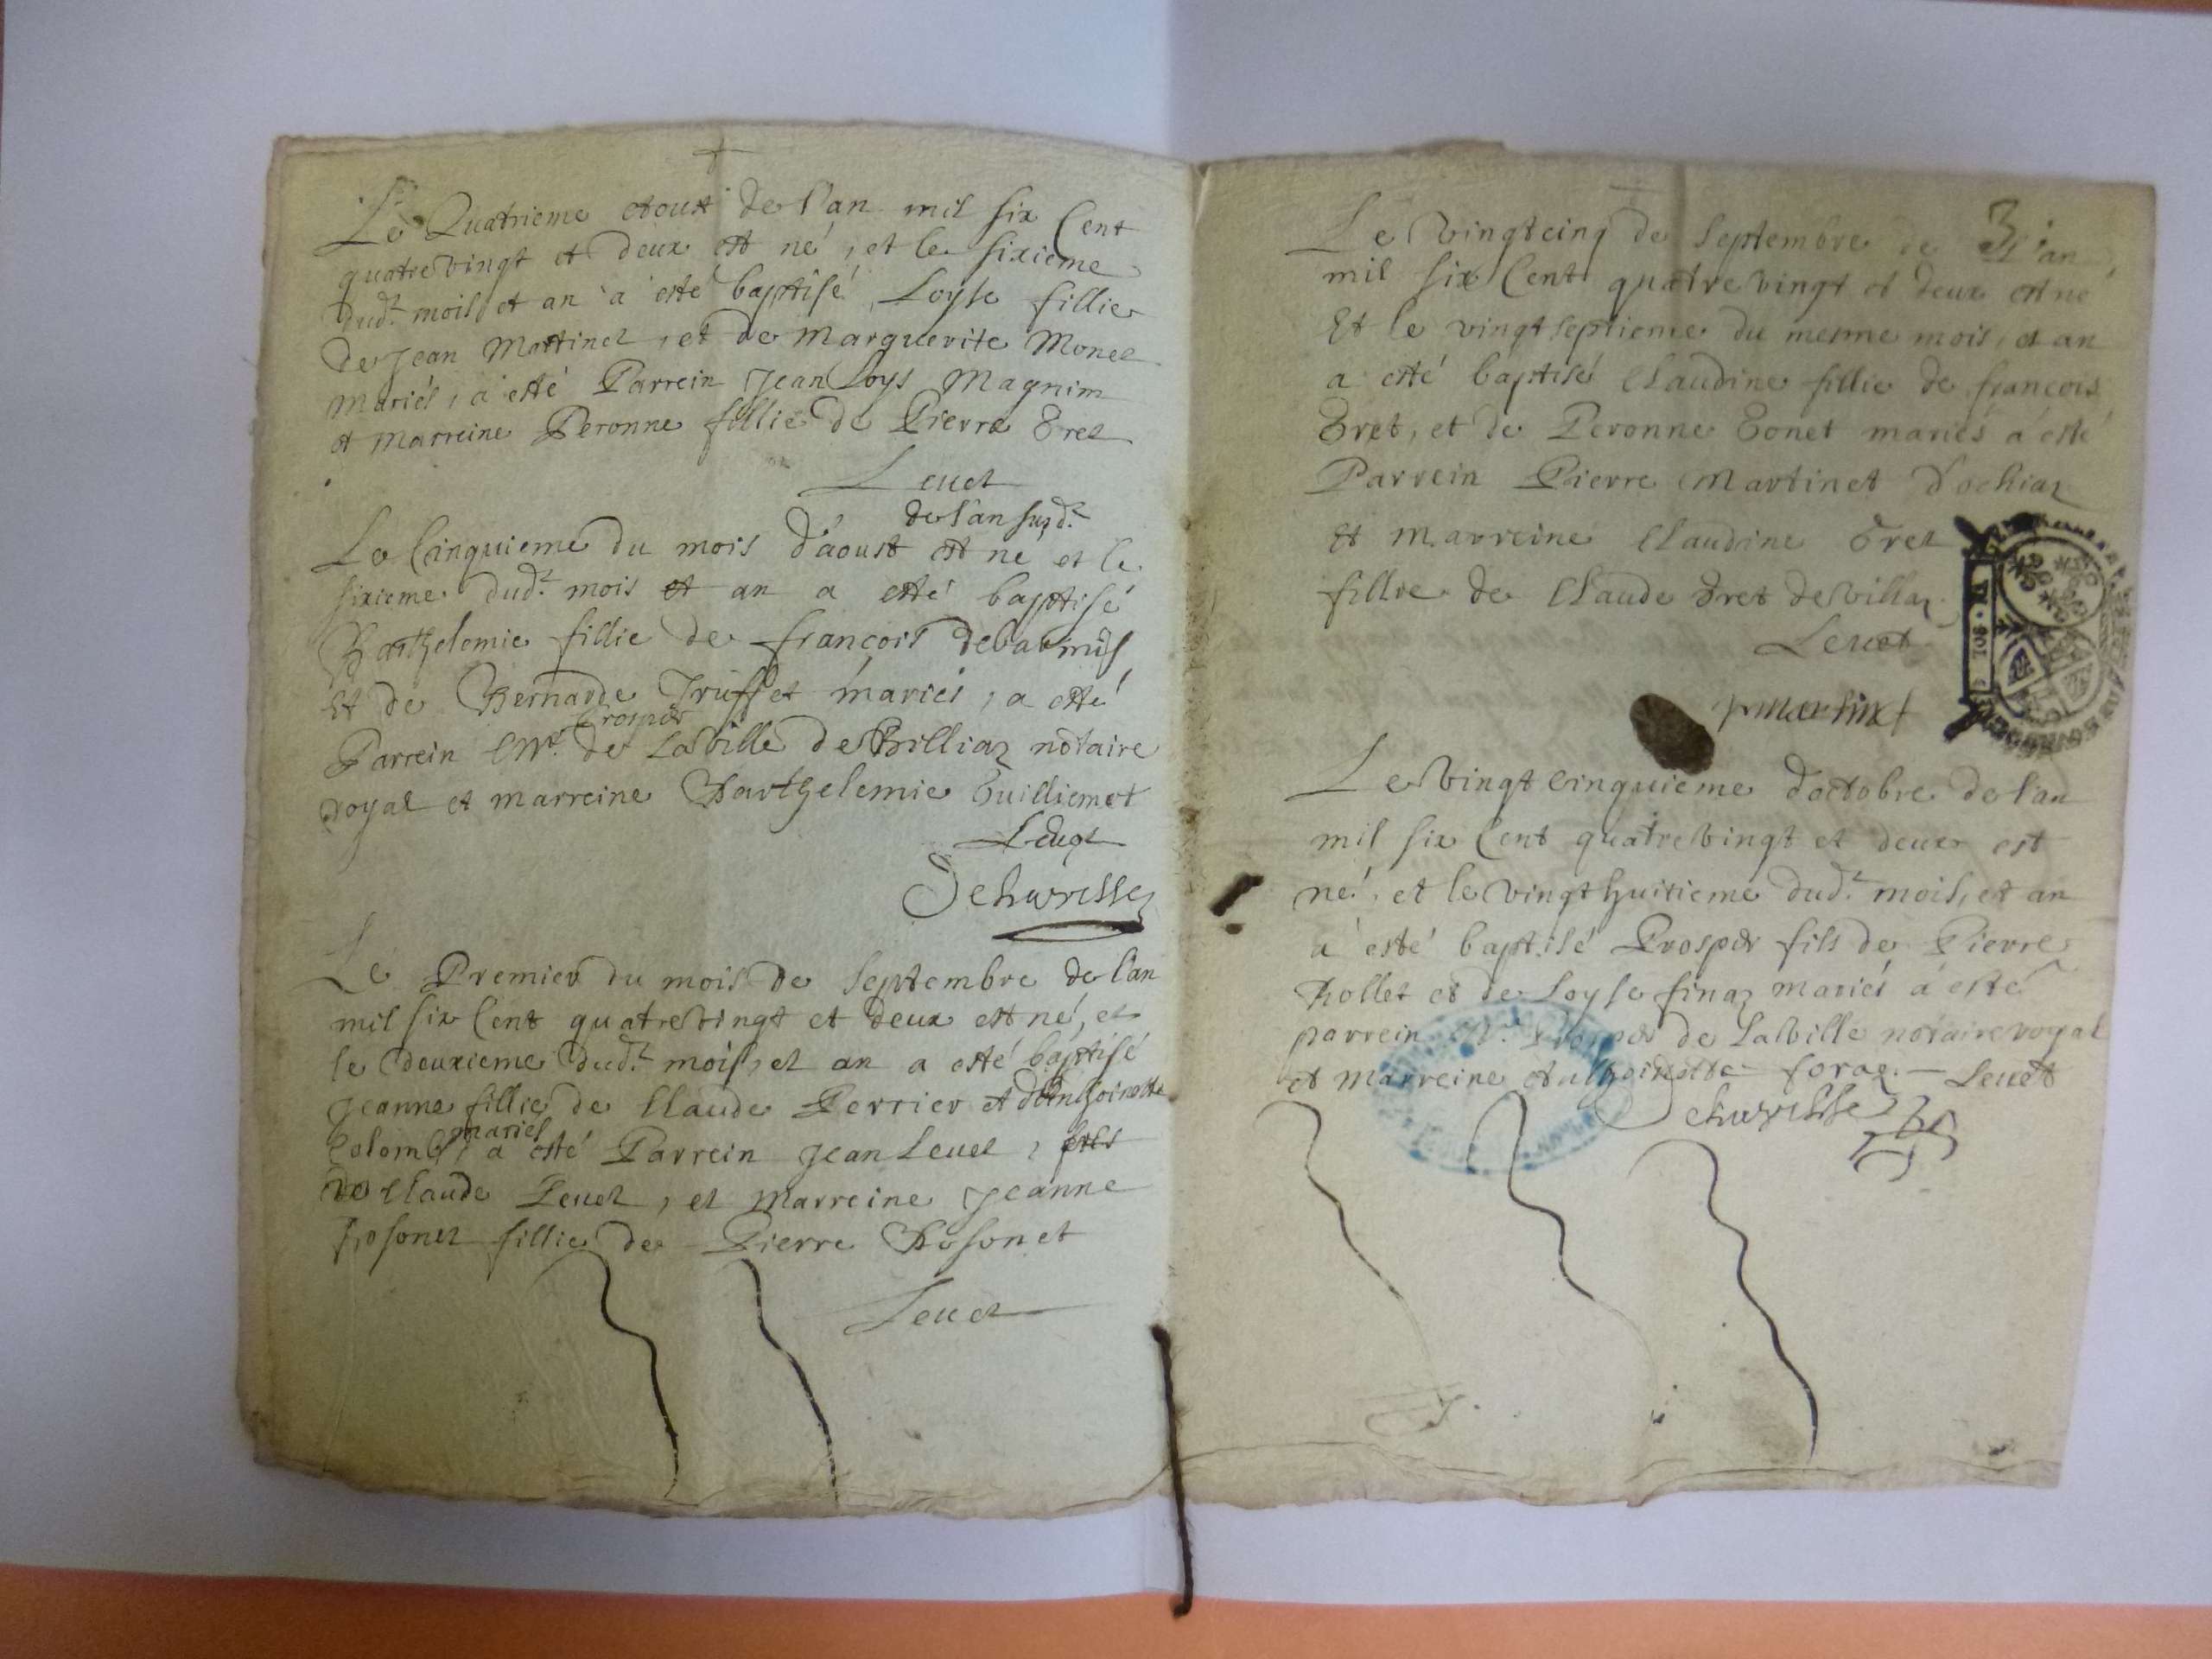 Le Quatrieme etoust de l'an mil six Cent
quatrevingt et deux est né, et le sixieme
dudt mois et an a esté baptisé Loyse fillie
de Jean Martinet, et de Marguerite Monet
mariés, a esté Parrein Jean Loys Magnim
et marreine Peronne fillie de Pierre
Levet
de l'an susdt
Le Cinquieme du mois d'aoust est né et le
sixieme dudt mois et an a esté baptisé
Barthelemie fillie de françois
Et de Bernarde Truffet mariés, a esté
Prosper
Parrein Mre de LaVille de Billiaz notaire
royal et marreine Barthelemie Guilliemet
Levet
Le Premier du mois de Septembre de l'an
mil six Cent quatrevingt et deux est né, et
le deuxieme dudt mois, et an a esté baptisé
Jeanne fillie de Claude Perrier et d'Anthoinette
mariés
Colomb, a esté Parrein Jean Levet, fils
de Claude Levet, et Marreine Jeanne
Rosonet fillie de Pierre Rosonet
Levet
3
Le Vingtcinq de Septembre de l'an
mil six Cent quatre vingt et deux est né
Et le vingtseptieme du mesme mois, et an
a esté baptisé Claudine fillie de françois
et de Peronne Gonet mariés a esté
Parrein Pierre Martinet d'ochiaz
Et Marreine Claudine
fillie de Claude de Villaz
Levet
pmartinet
Le Vingt cinquieme d'octobre de l'an
mil six Cent quatrevingt et deux est
né, et le vingthuitieme dudt mois, et an
a esté baptisé Prosper fils de Pierre
Rollet et de Loyse finaz mariés a esté
parrein Mr Prosper de LaVille notaire royal
et Marreine Anthoinette foraz. — Levet